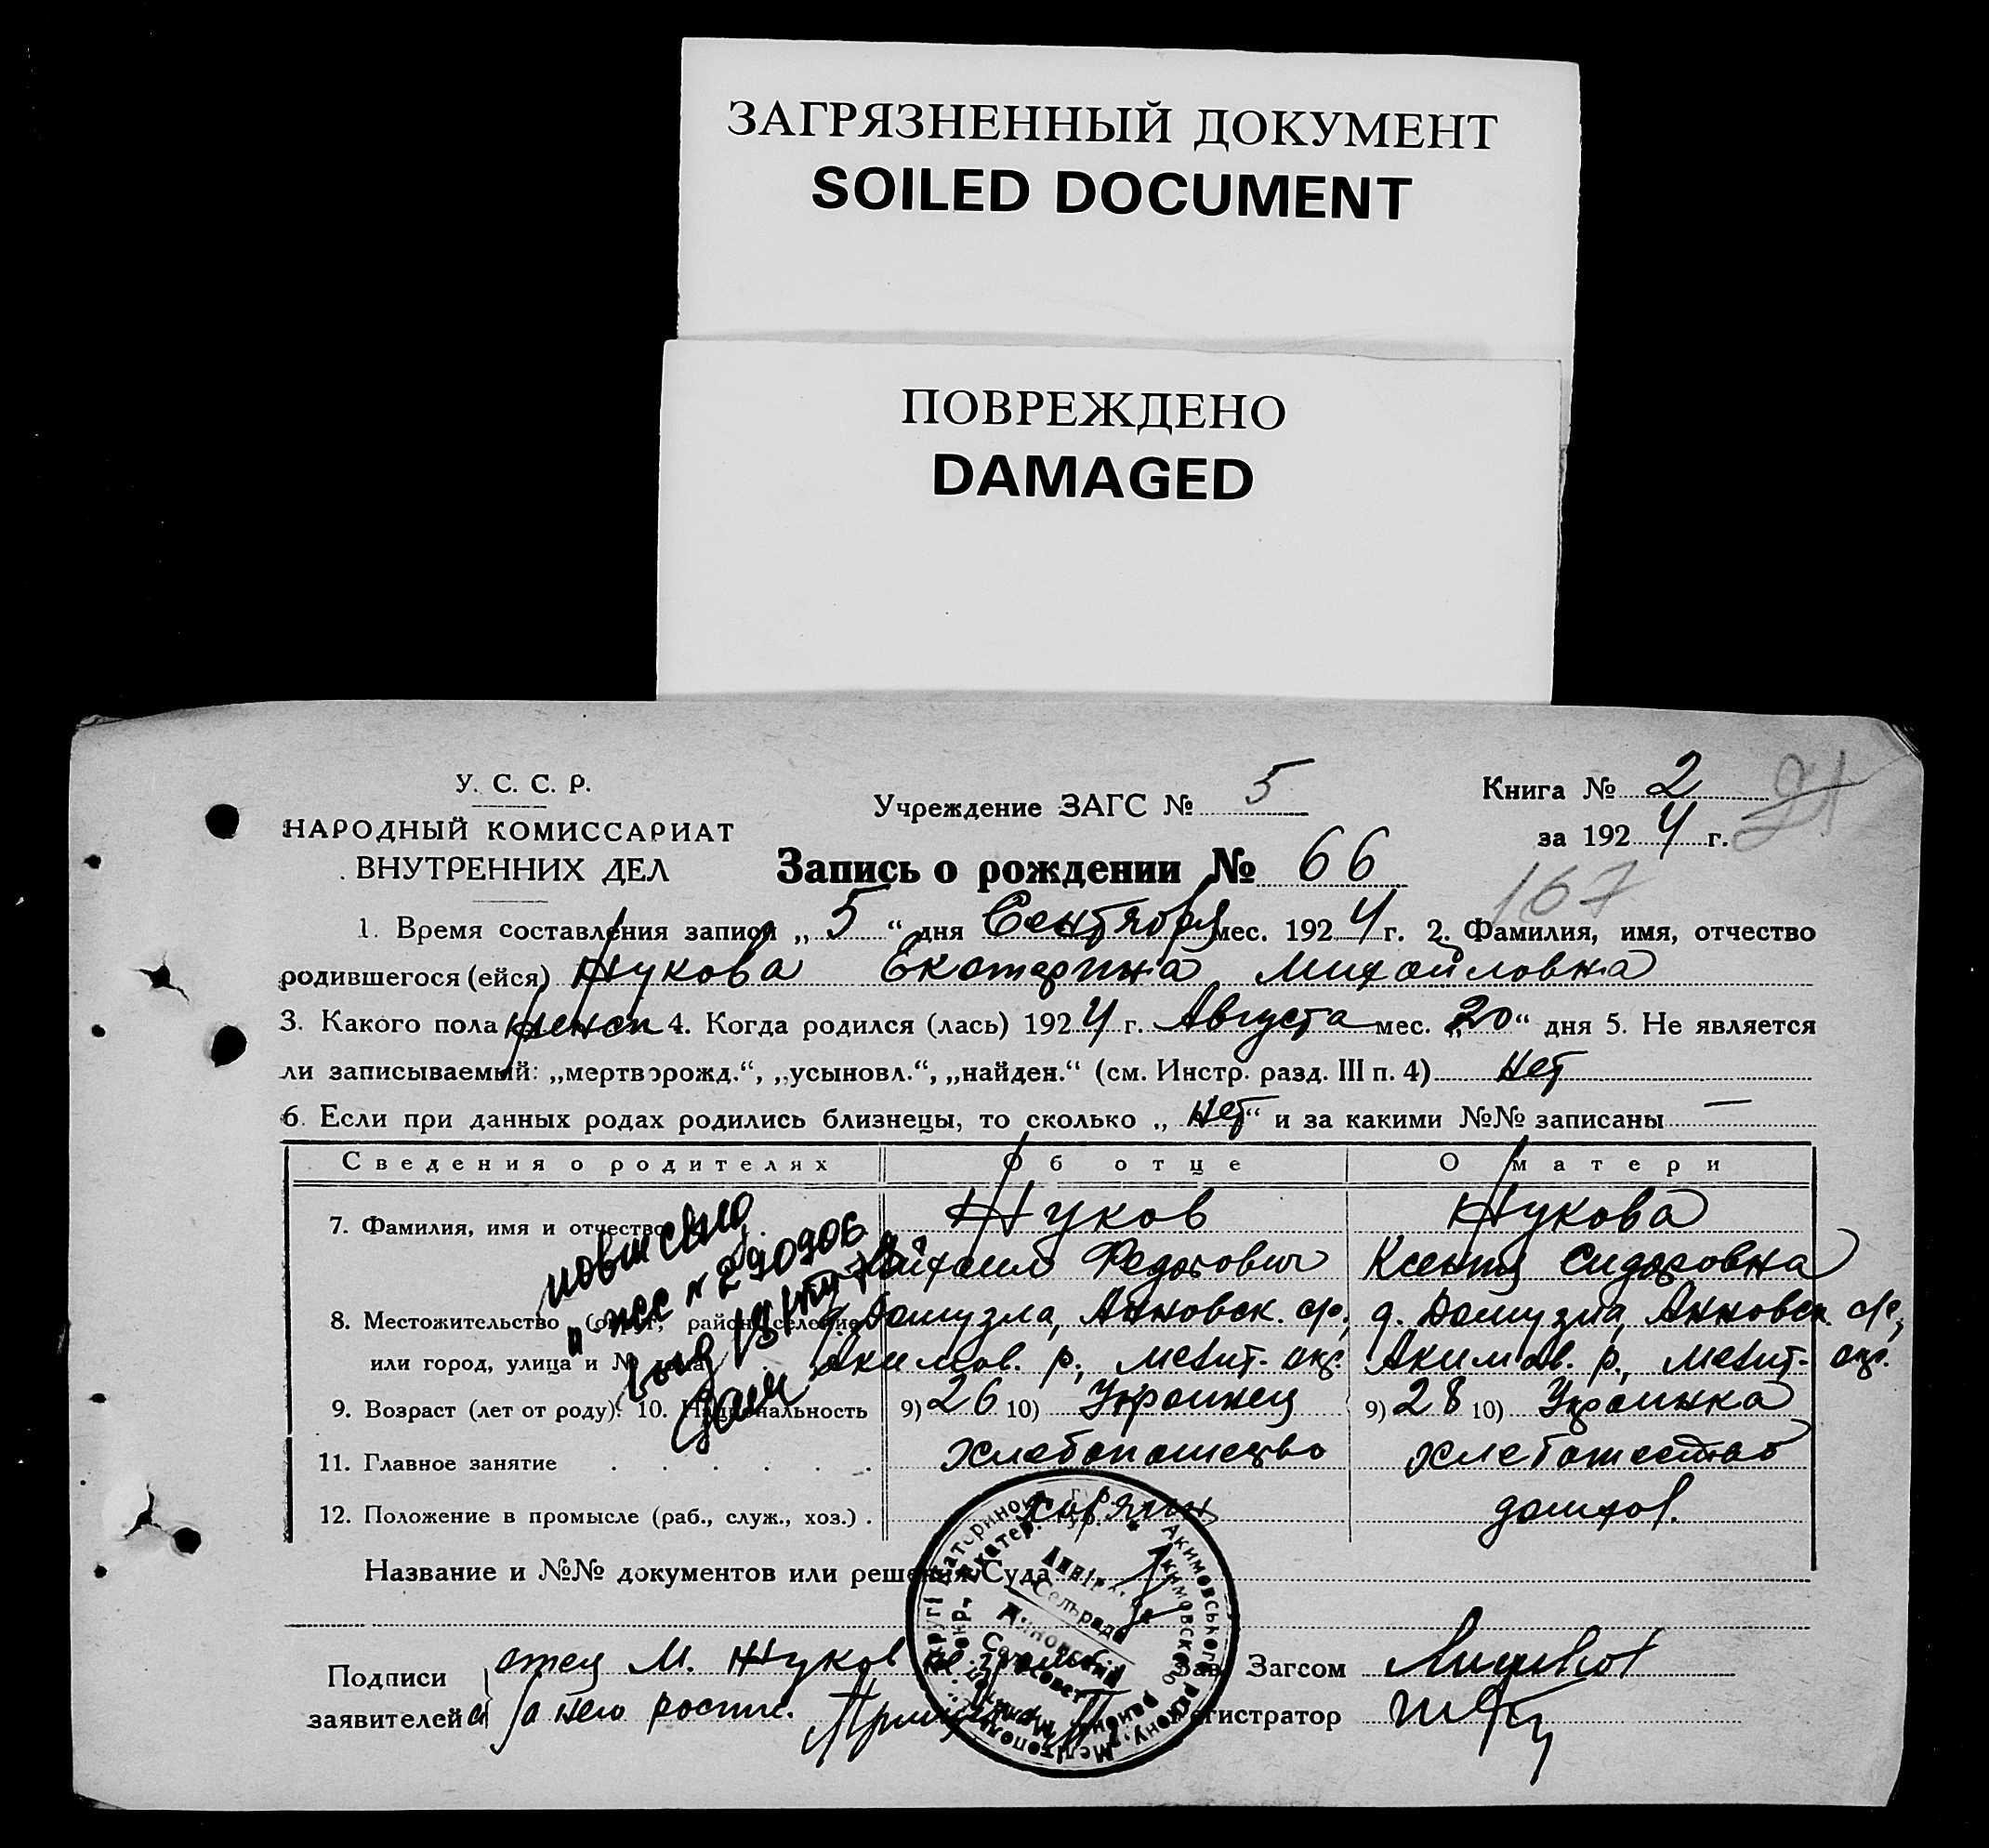 ЗАГРЯЗНЕННЫЙ ДОКУМЕНТ
SOILED DOCUMENT
ПОВРЕЖДЕНО
DAMAGED
У. С. С. Р.
НАРОДНЫЙ КОМИССАРИАТ
ВНУТРЕННИХ ДЕЛ
Учреждение ЗАГС № 5
Книга № 2
21
за 1924 г.
Запись о рождении № 66
167
1. Время составления записи „ 5 “ дня Сентября мес. 1924 г. 2. Фамилия, имя, отчество
родившегося (ейся) Жукова Екатерина Михайловна
3. Какого пола женск 4. Когда родился (лась) 1924 г. Августа мес. „20“ дня 5. Не является
ли записываемый: „мертворожд.“, „усыновл.“, „найден.“ (см. Инстр. разд. III п. 4) нет
6. Если при данных родах родились близнецы, то сколько „ нет “ и за какими №№ записаны —
Сведения о родителях Об отце О матери
7. Фамилия, имя и отчество Жуков Жукова
Михаил Федорович Ксения Сидоровна
8. Местожительство (округ, район, селение д. Домузла, Анновск. с/с, д. Домузла, Анновск. с/с,
или город, улица и № дома) Акимов. р., Мелит. окр. Акимов. р., Мелит. окр.
9. Возраст (лет от роду). 10. Национальность 9) 26 10) Украинец 9) 28 10) Украинка
11. Главное занятие хлебопашество хлебопашество
12. Положение в промысле (раб., служ., хоз.) . хозяин домхоз.
№ 290906
Название и №№ документов или решения Суда
Подписи заявителей отец М. Жуков
за него роспис.
Зав. Загсом
Регистратор
Сельрада